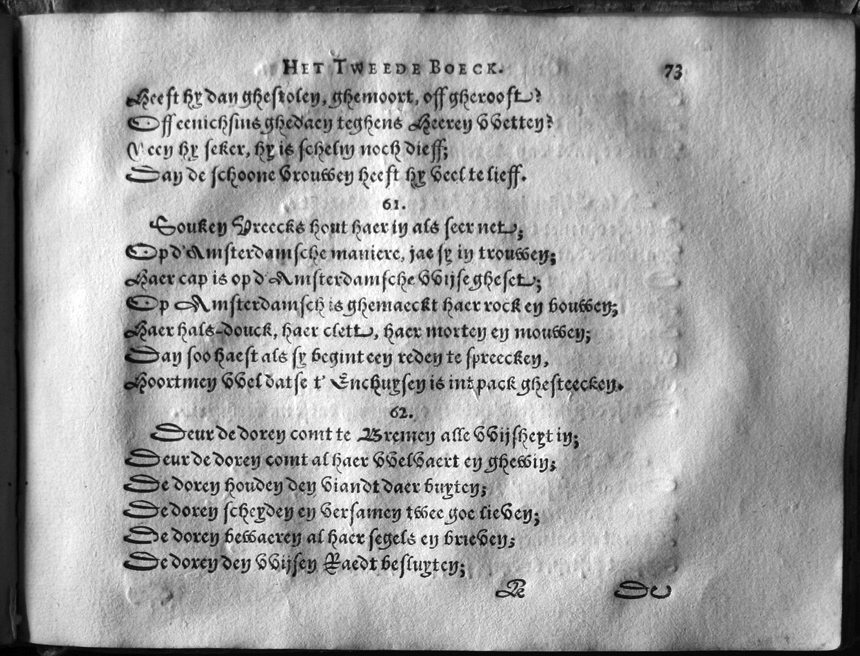 HET TWEEDE BOECK. 73
Heeft hy dan ghestolen, ghemoort, off gherooft?
Off eenich sins ghedaen teghens Heeren VVetten?
Neen hy seker, hy is schelm noch dieff;
Dan de schoone Vrouwen heeft hy veel te lieff.
61.
Soutken Vreecks hout haer in als seer net;
Op d'Amsterdamsche maniere, jae sy in trouwen;
Haer cap is op d'Amsterdamsche VVijse gheset;
Op Amsterdamsch is ghemaeckt haer rock en bouwen;
Haer hals-douck, haer clett, haer morten en mouwen;
Dan soo haest als sy begint een reden te spreecken,
Hoortmen VVel datse t' Enchuysen is int pack ghesteecken.
62.
Deur de doren comt te Bremen alle VVijsheyt in;
Deur de doren comt al haer VVelVaert en ghewin;
De doren houden den viandt daer buyten;
De doren scheyden en Versamen twee goe lieven;
De doren bewaeren al haer segels en brieVen;
De doren den VVijsen Raedt besluyten;
K De